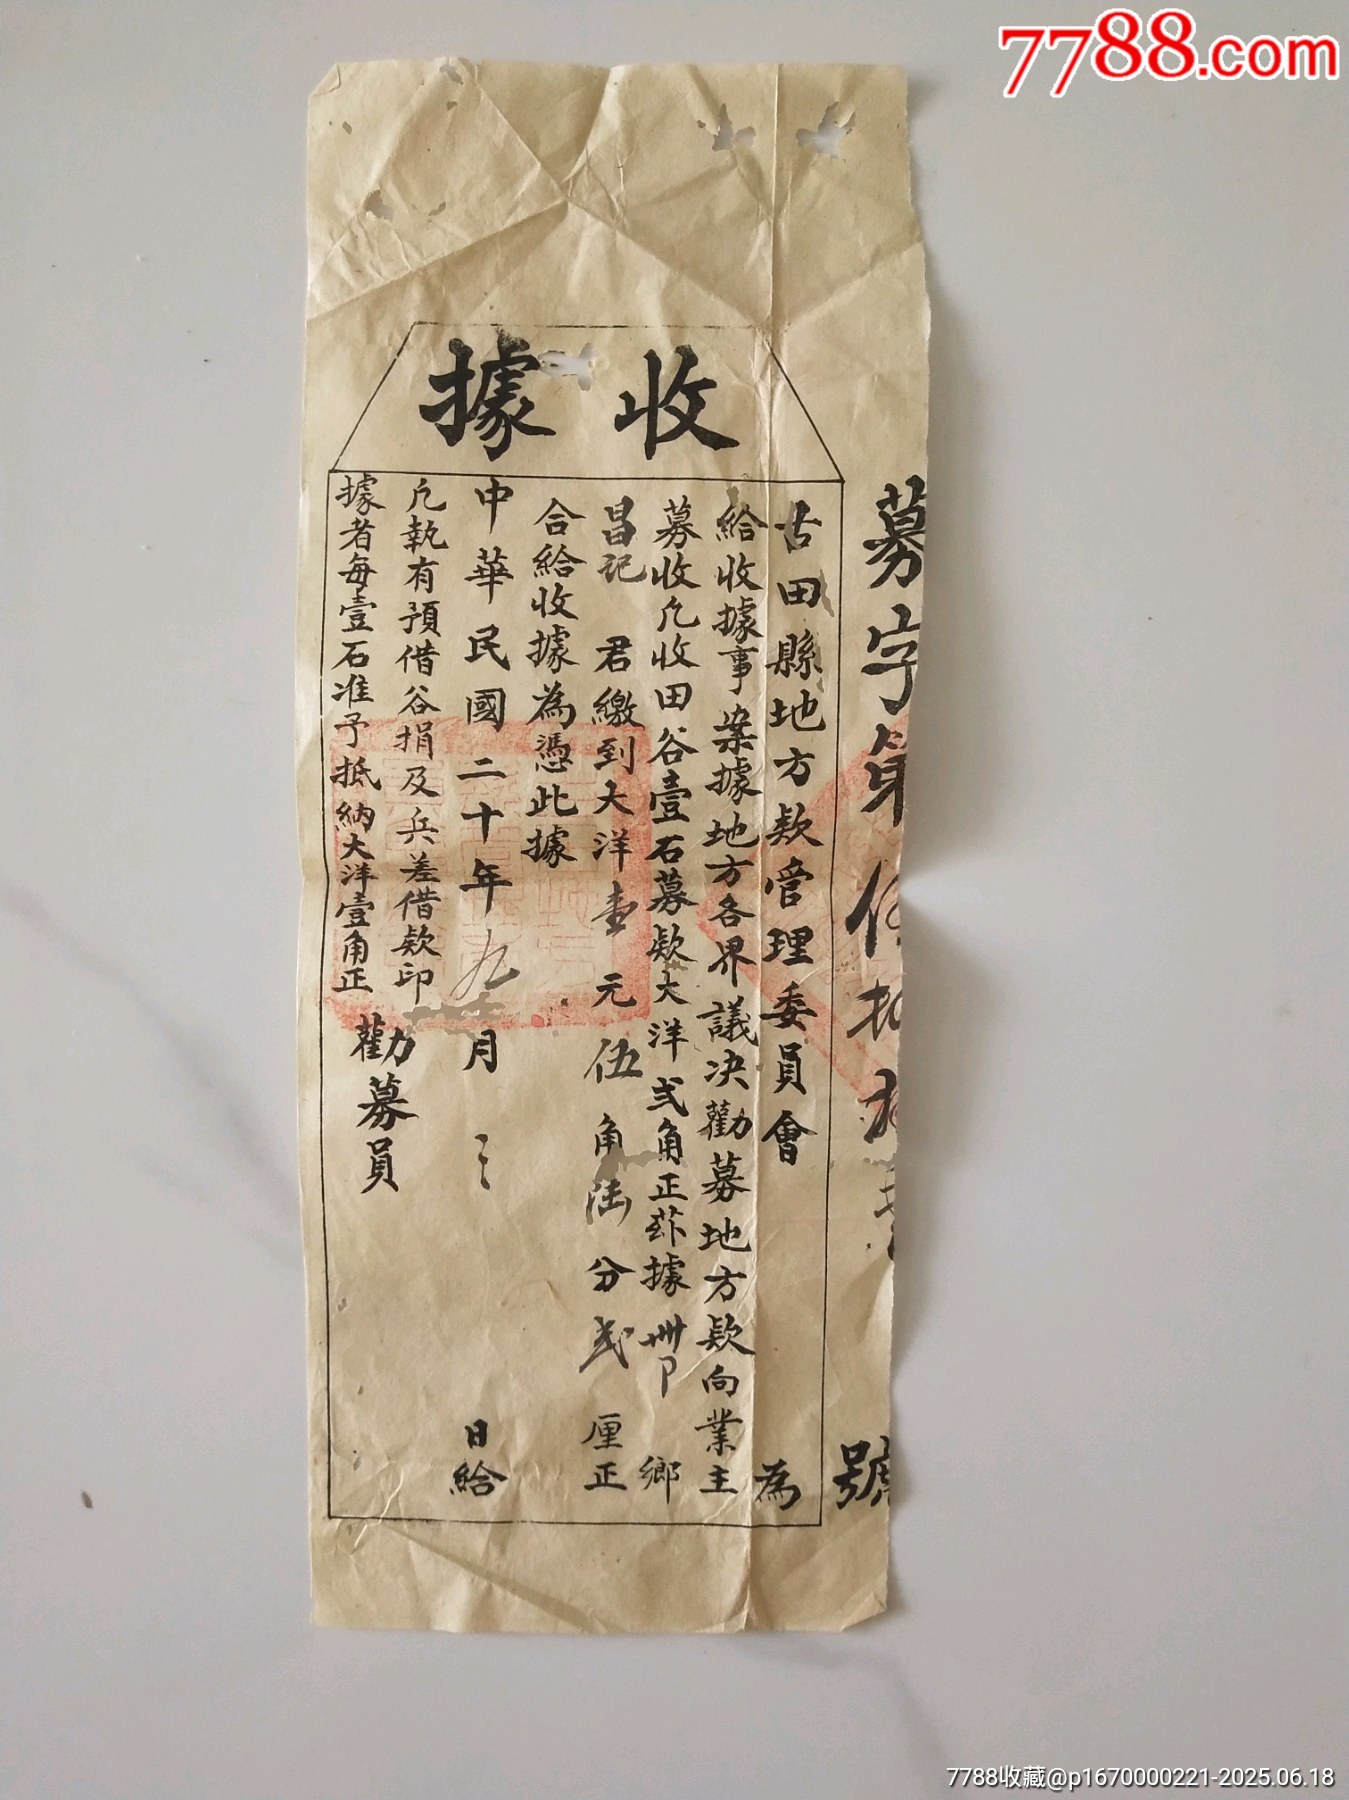 7788.com
收據
募字第伍拾號
古田縣地方款管理委員會為
給收據事案據地方各界議決勸募地方款向業主
募收凡收田谷壹石募款大洋弍角正茲據卅卩鄉
昌記君繳到大洋壹元伍角陆分弍厘正
合給收據為憑此據
中華民國二十年九月日給
凡執有預借谷捐及兵差借款印
據者每壹石准予抵納大洋壹角正
勸募員
7788收藏@p1670000221-2025.06.18